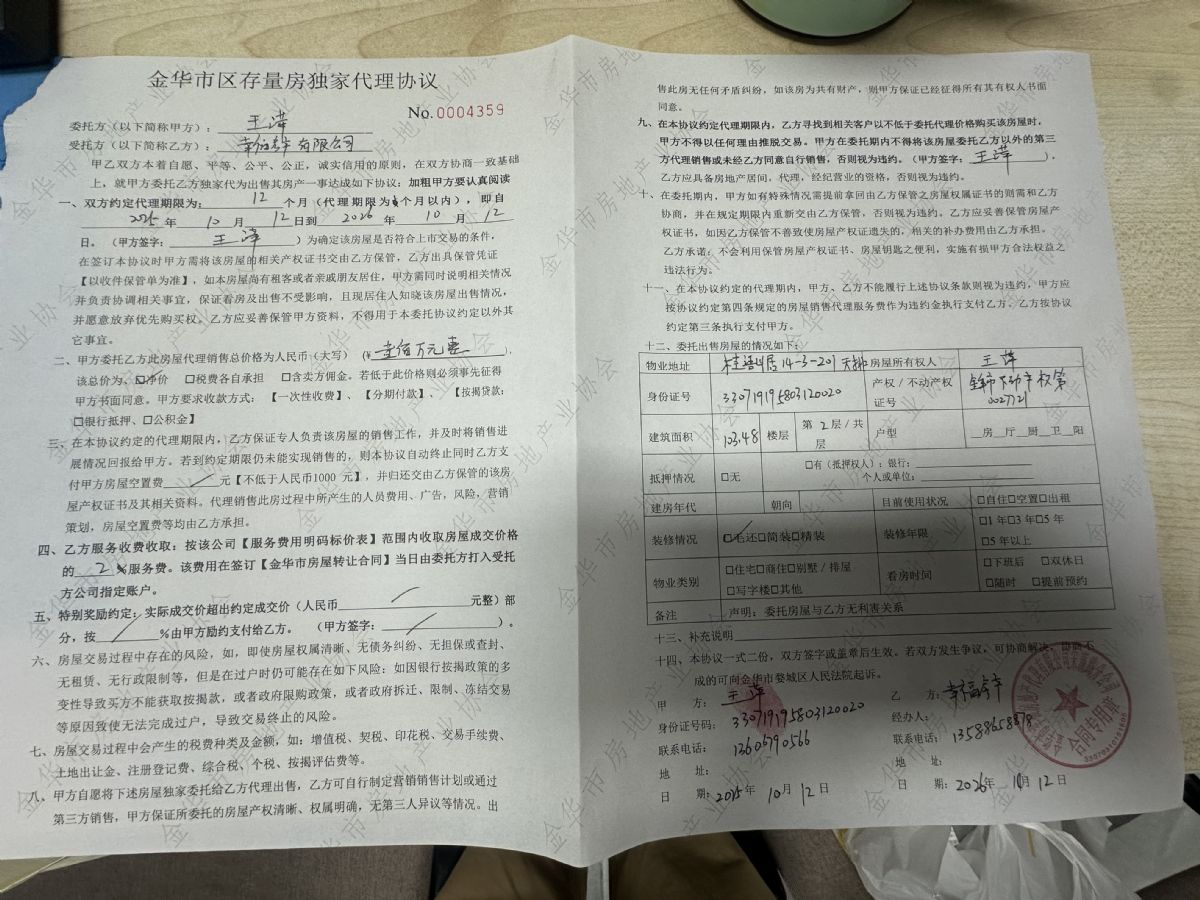 金华市区存量房独家代理协议
No.0004359
委托方（以下简称甲方）：王萍
受托方（以下简称乙方）：有限公司
甲乙双方本着自愿、平等、公平、公正，诚实信用的原则，在双方协商一致基础
上，就甲方委托乙方独家代为出售其房产一事达成如下协议：加粗甲方要认真阅读
一、双方约定代理期限为：12个月（代理期限为 个月以内），即自
2025年10月12日到2026年10月12
日。（甲方签字：王萍）为确定该房屋是否符合上市交易的条件，
在签订本协议时甲方需将该房屋的相关产权证书交由乙方保管，乙方出具保管凭证
【以收件保管单为准】，如本房屋尚有租客或者亲戚朋友居住，甲方需同时说明相关情况
并负责协调相关事宜，保证看房及出售不受影响，且现居住人知晓该房屋出售情况，
并愿意放弃优先购买权。乙方应妥善保管甲方资料，不得用于本委托协议约定以外其
它事宜。
二、甲方委托乙方此房屋代理销售总价格为人民币（大写）（¥壹佰万元整），
该总价为、☑净价 □税费各自承担 □含卖方佣金。若低于此价格则必须事先征得
甲方书面同意。甲方要求收款方式：【一次性收费】、【分期付款】、【按揭贷款：
□银行抵押、□公积金】
三、在本协议约定的代理期限内，乙方保证专人负责该房屋的销售工作，并及时将销售进
展情况回报给甲方。若到约定期限仍未能实现销售的，则本协议自动终止同时乙方支
付甲方房屋空置费 / 元【不低于人民币1000 元】，并归还交由乙方保管的该房
屋产权证书及其相关资料。代理销售此房过程中所产生的人员费用、广告，风险，营销
策划，房屋空置费等均由乙方承担。
四、乙方服务收费收取：按该公司【服务费用明码标价表】范围内收取房屋成交价格
的 2 %服务费。该费用在签订【金华市房屋转让合同】当日由委托方打入受托
方公司指定账户。
五、特别奖励约定：实际成交价超出约定成交价（人民币 / 元整）部
分，按 / %由甲方励约支付给乙方。（甲方签字： / ）。
六、房屋交易过程中存在的风险，如，即使房屋权属清晰、无债务纠纷、无担保或查封、
无租赁、无行政限制等，但是在过户时仍可能存在如下风险：如因银行按揭政策的多
变性导致买方不能获取按揭款，或者政府限购政策，或者政府拆迁、限制、冻结交易
等原因致使无法完成过户，导致交易终止的风险。
七、房屋交易过程中会产生的税费种类及金额，如：增值税、契税、印花税、交易手续费、
土地出让金、注册登记费、综合税、个税、按揭评估费等。
八、甲方自愿将下述房屋独家委托给乙方代理出售，乙方可自行制定营销销售计划或通过
第三方销售，甲方保证所委托的房屋产权清晰、权属明确，无第三人异议等情况。出
售此房无任何矛盾纠纷，如该房为共有财产，则甲方保证已经征得所有其有权人书面
同意。
九、在本协议约定代理期限内，乙方寻找到相关客户以不低于委托代理价格购买该房屋时，
甲方不得以任何理由推脱交易。甲方在委托期内不得将该房屋委托乙方以外的第三
方代理销售或未经乙方同意自行销售，否则视为违约。（甲方签字：王萍），
乙方应具备房地产居间、代理，经纪营业的资格，否则视为违约。
十、在委托期内，甲方如有特殊情况需提前拿回由乙方保管之房屋权属证书的则需和乙方
协商，并在规定期限内重新交由乙方保管，否则视为违约。乙方应妥善保管房屋产
权证书，如因乙方保管不善致使房屋产权证遗失的，相关的补办费用由乙方承担。
乙方承诺：不会利用保管房屋产权证书、房屋钥匙之便利，实施有损甲方合法权益之
违法行为。
十一、在本协议约定的代理期内，甲方、乙方不能履行上述协议条款则视为违约，甲方应
按协议约定第四条规定的房屋销售代理服务费作为违约金执行支付乙方。乙方按协议
约定第三条执行支付甲方。
十二、委托出售房屋的情况如下：
物业地址 桂语 居14-3-201 房屋所有权人 王萍
身份证号 330719195803120020 产权/不动产权证号 不动产权第0027721
建筑面积 103.48 楼层 第2层/共 层 户型 __房__厅__厨__卫__阳
抵押情况 □无 □有（抵押权人）：银行： 个人或单位：
建房年代 朝向 目前使用状况 □自住□空置□出租
装修情况 ☑毛还□简装□精装 装修年限 □1年□3年□5年 □5年以上
物业类别 □住宅□商住□别墅/排屋 □写字楼□其他 看房时间 □下班后 □双休日 □随时 □提前预约
备注 声明：委托房屋与乙方无利害关系
十三、补充说明
十四、本协议一式二份，双方签字或盖章后生效。若双方发生争议，可协商解决，协商不
成的可向金华市婺城区人民法院起诉。
甲 方：王萍
身份证号码：330719195803120020
联系电话：13606790566
地 址：
日 期：2025年10月12日
乙 方：幸福
经办人：
联系电话：13588658878
地 址：
日 期：2026年10月12日
合同专用章
金华市房地产业协会